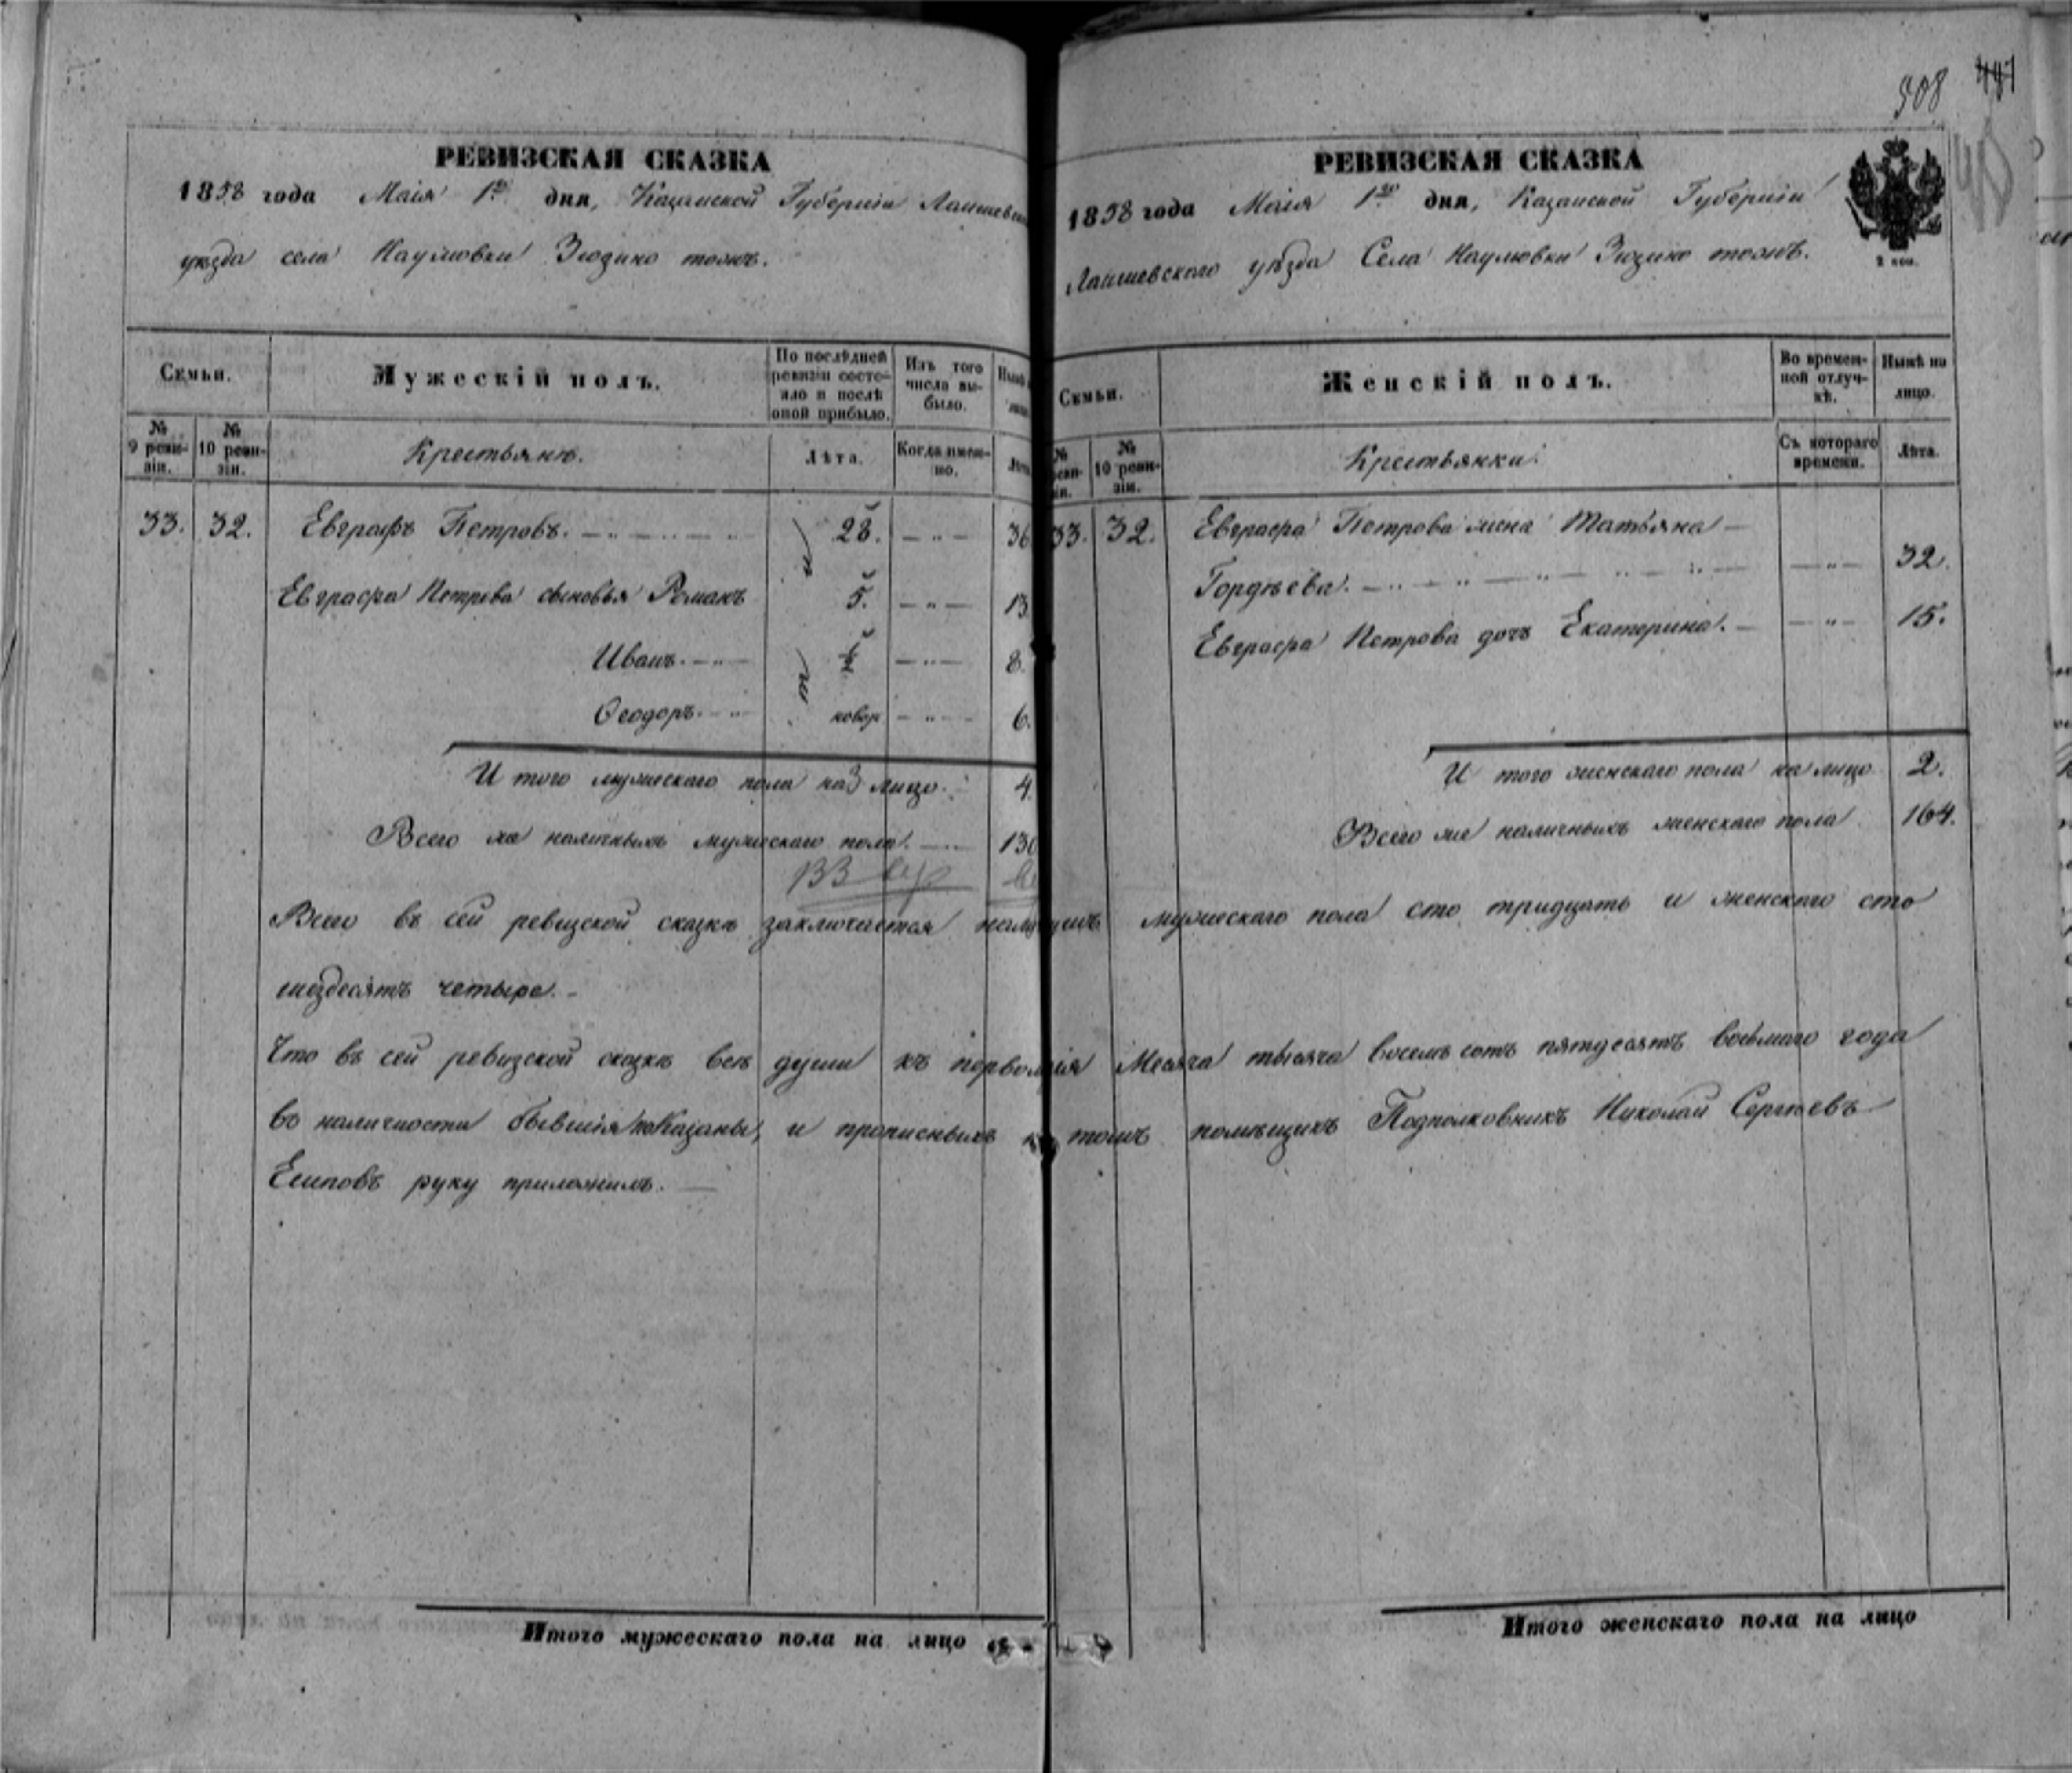 508 441
РЕВИЗСКАЯ СКАЗКА
1858 года Маія 1го дня, Казанской Губерніи Лаишевска
уѣзда села Наумовки Зюзино тожъ.
Семьи.
Мужескій полъ.
По послѣдней ревизіи состояло и послѣ оной прибыло.
Изъ того числа выбыло.
№ 9 ревизіи.
№ 10 ревизіи.
Крестьяне.
Лѣта.
Когда именно.
33. 32. Евграфъ Петровъ. 28. 36
Евграфа Петрова сыновья Романъ 5. 13
Иванъ. ½ 8.
Ѳеодоръ. новор 6.
И того мужескаго пола на лицо. 4.
Всего же наличныхъ мужескаго пола. 130
133
РЕВИЗСКАЯ СКАЗКА
1858 года Маія 1го дня, Казанской Губерніи
Лаишевскаго уѣзда Села Наумовки Зюзино тожъ.
2 коп.
Семьи.
Женскій полъ.
Во временной отлучкѣ.
Нынѣ на лицо.
№ 10 ревизіи.
Крестьянки.
Съ котораго времени.
Лѣта.
33. 32. Евграфа Петрова жена Татьяна
Гордѣева. 32.
Евграфа Петрова дочь Екатерина. 15.
И того женскаго пола на лицо 2.
Всего же наличныхъ женскаго пола 164.
Всего въ сей ревизской сказкѣ заключается мужескаго пола сто тридцать и женскаго сто
шездесятъ четыре.
Что въ сей ревизской сказкѣ всѣ души къ Месяца тысяча восемь сотъ пятдесятъ восьмаго года
въ наличности бывшія показаны, и прописныхъ помѣщикъ Подполковникъ Николай Сергѣевъ
Есиповъ руку приложилъ.
Итого мужескаго пола на лицо
Итого женскаго пола на лицо